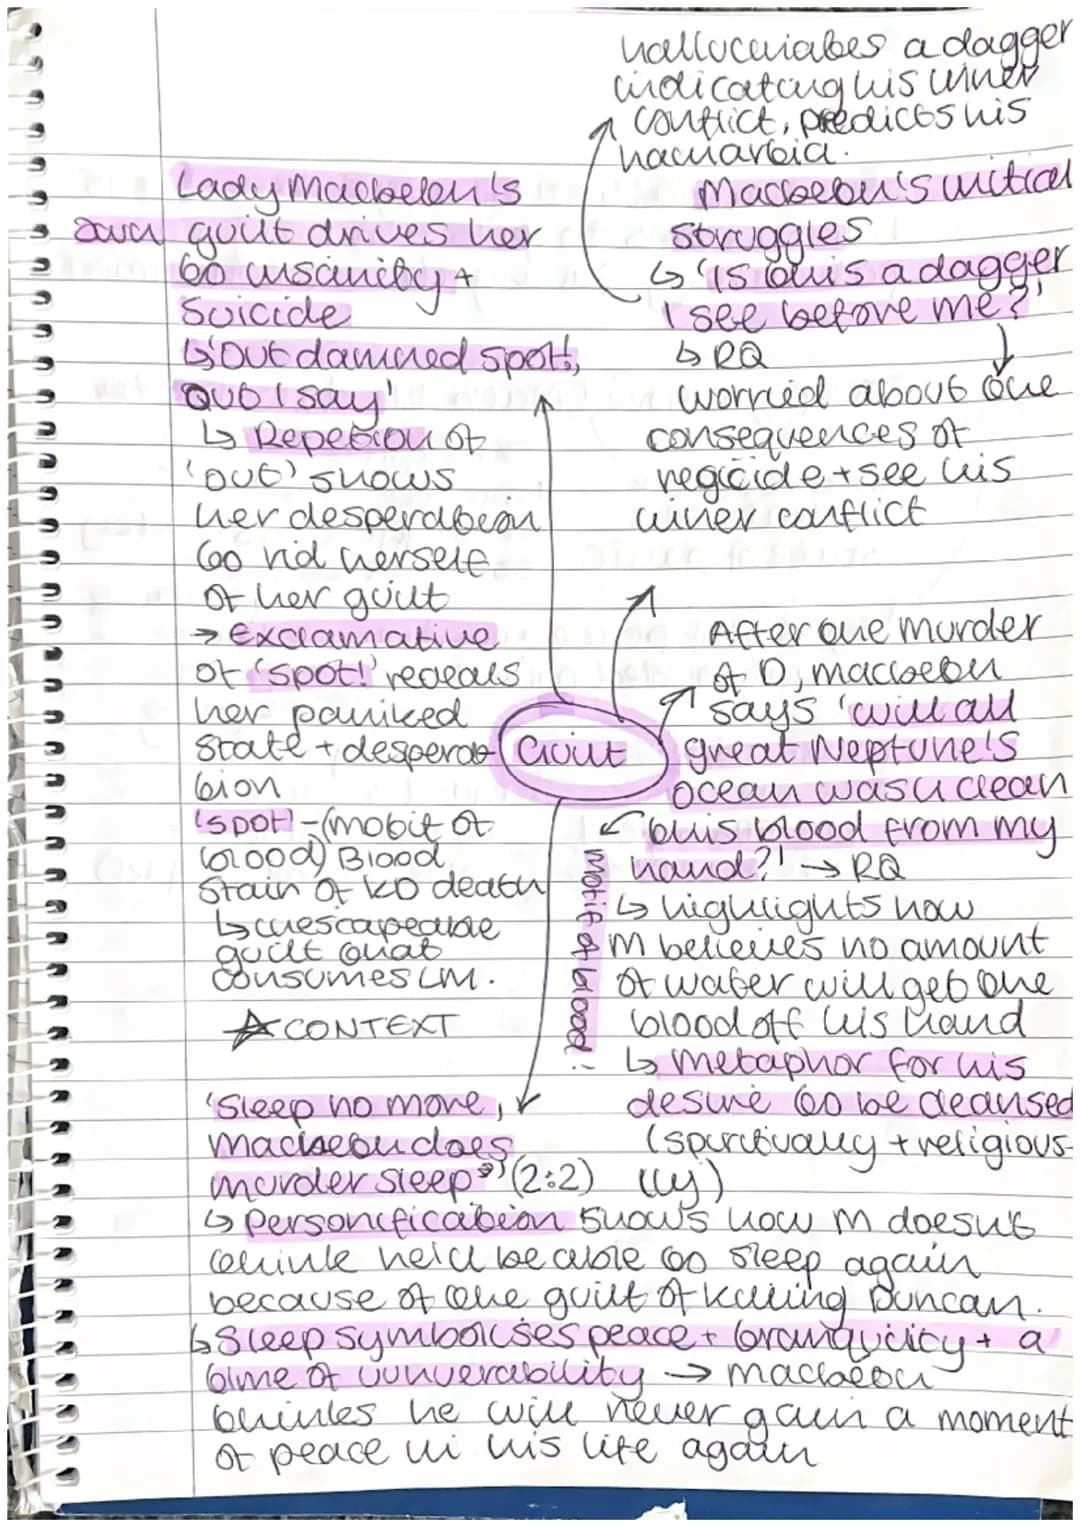 hallucinates a dagger
indicating his inner
conflict, predicts his
hamartia.
Macbeth's initial
struggles
↳ 'Is this a dagger
I see before me?'
↳ RQ
worried about the
consequences of
regicide + see his
inner conflict
Lady Macbeth's
guilt drives her
to insanity +
Suicide
↳ 'Out damned spot!,
Out I say'
↳ Repetion of
'out' shows
her desperation
to rid herself
of her guilt
→ Exclamative
of 'spot!' reveals
her paniked
state + despera
tion
'spot' - (motif of
blood) Blood
stain of KD death
↳ inescapeable
guilt that
consumes LM.
☆ CONTEXT
Guilt
After the murder
of D, macbeth
says 'will all
great Neptune's
ocean wash clean
this blood from my
hand?' → RQ
↳ highlights how
M believes no amount
of water will get the
blood off his hand
↳ metaphor for his
desire to be cleansed
(spiritually + religious-
lly)
motif of blood!
'Sleep no more,
macbeth does
murder sleep' (2:2)
↳ Personification shows how M doesn't
think he'd be able to sleep again
because of the guilt of killing Duncan.
↳ Sleep symbolises peace + tranquility + a
time of vunverability → macbeth
thinks he will never gain a moment
of peace in his life again